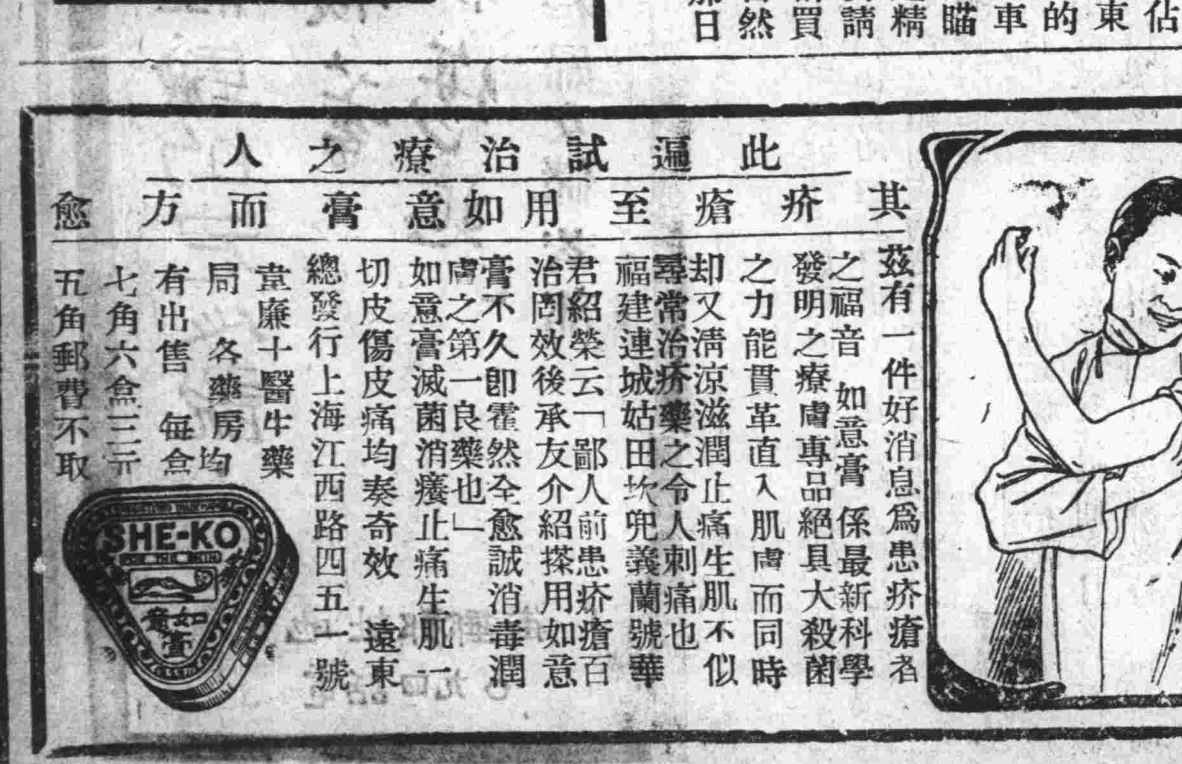 佔
東
的
車
瞄
精
請
買
然
日
此遍試治療之人
其疥瘡至用如意膏而方愈
茲有一件好消息爲患疥瘡者
之福音 如意膏 係最新科學
發明之療膚專品絕具大殺菌
之力能貫革直入肌膚而同時
却又淸凉滋潤止痛生肌不似
尋常治疥藥之令人刺痛也
福建連城姑田坎兜義蘭號華
君紹榮云「鄙人前患疥瘡百
治罔效後承友介紹搽用如意
膏不久卽霍然全愈誠消毒潤
膚之第一良藥也」
如意膏滅菌消癢止痛生肌一
切皮傷皮痛均奏奇效 遠東
總發行上海江西路四五一號
韋廉士醫生藥
局 各藥房均
有出售 每盒
七角六盒三元
五角郵費不取
SHE-KO
FOR THE SKIN
如意膏